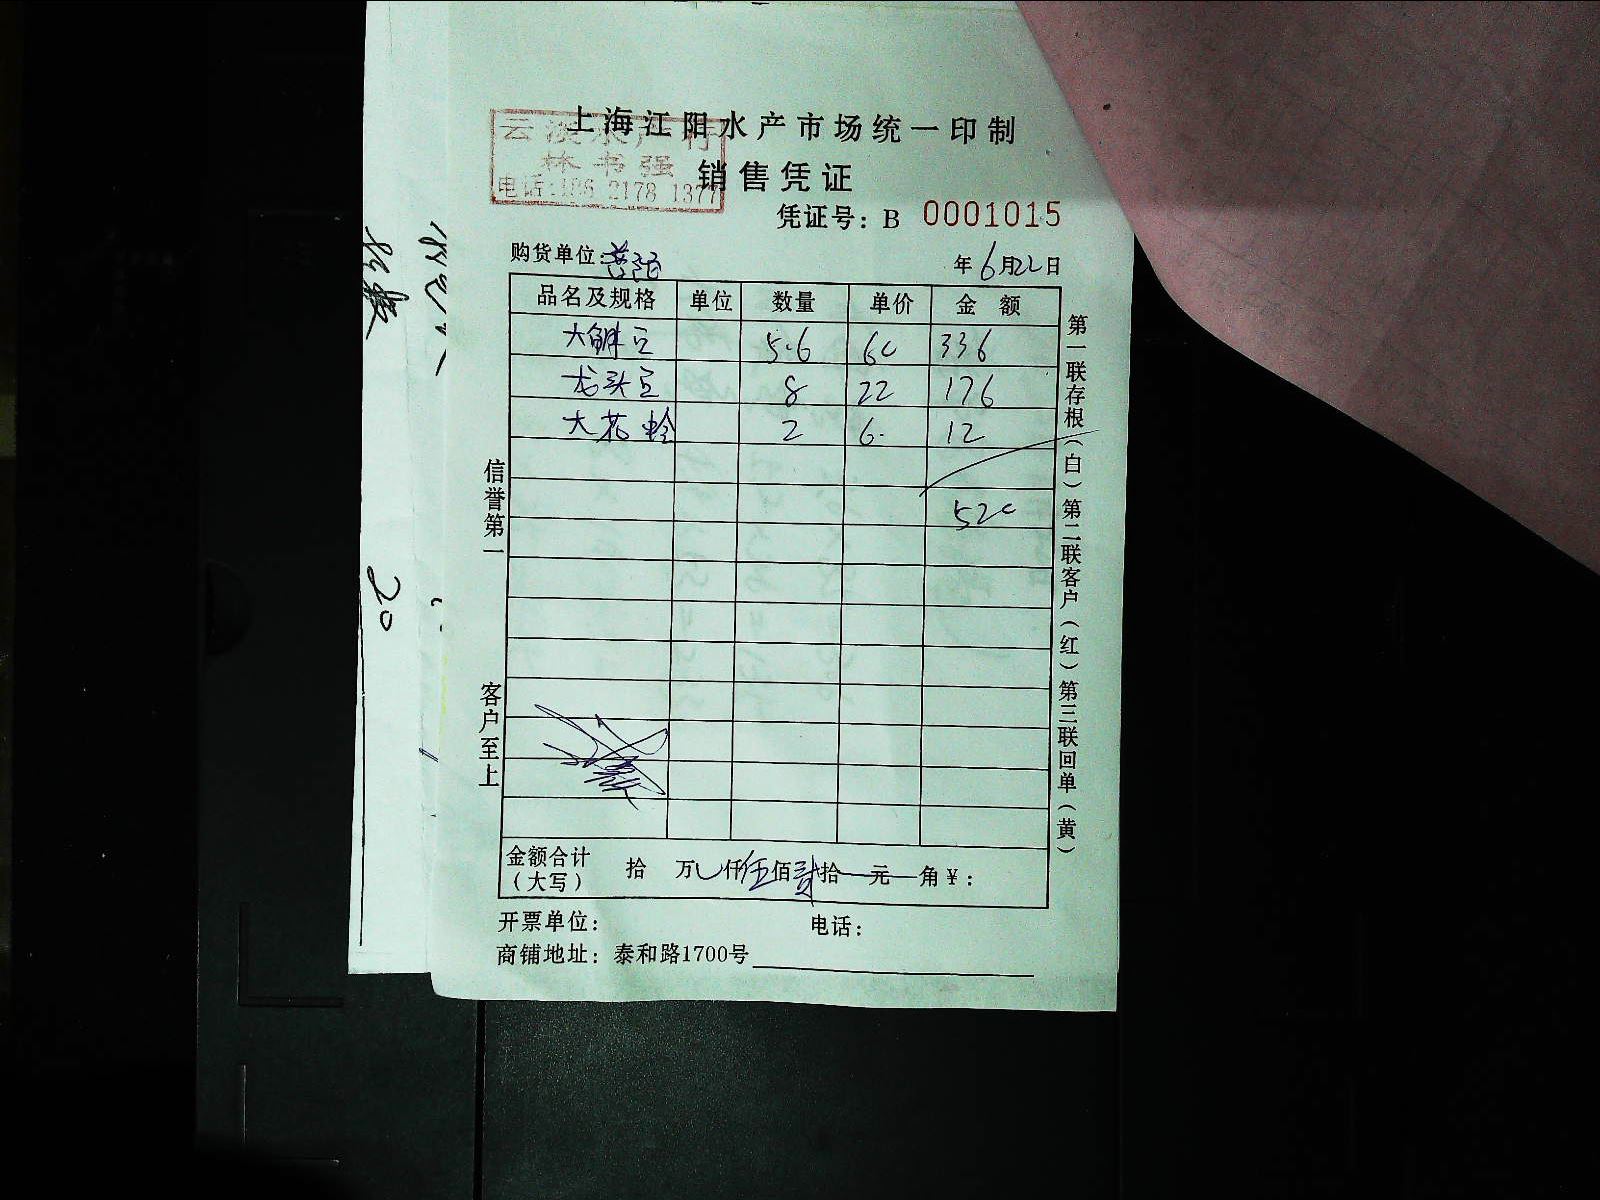 上海江阳水产市场统一印制
云波水产行
林书强
电话:186 2178 1377
销售凭证
凭证号: B 0001015
购货单位: 年6月22日
品名及规格 单位 数量 单价 金额
大鲜豆 5.6 60 336
龙头豆 8 22 176
大花蛤 2 6. 12
520
金额合计（大写） 拾 万 仟伍佰贰拾 元 角¥:
开票单位: 电话:
商铺地址: 泰和路1700号
信誉第一
客户至上
第一联存根（白）第二联客户（红）第三联回单（黄）
20